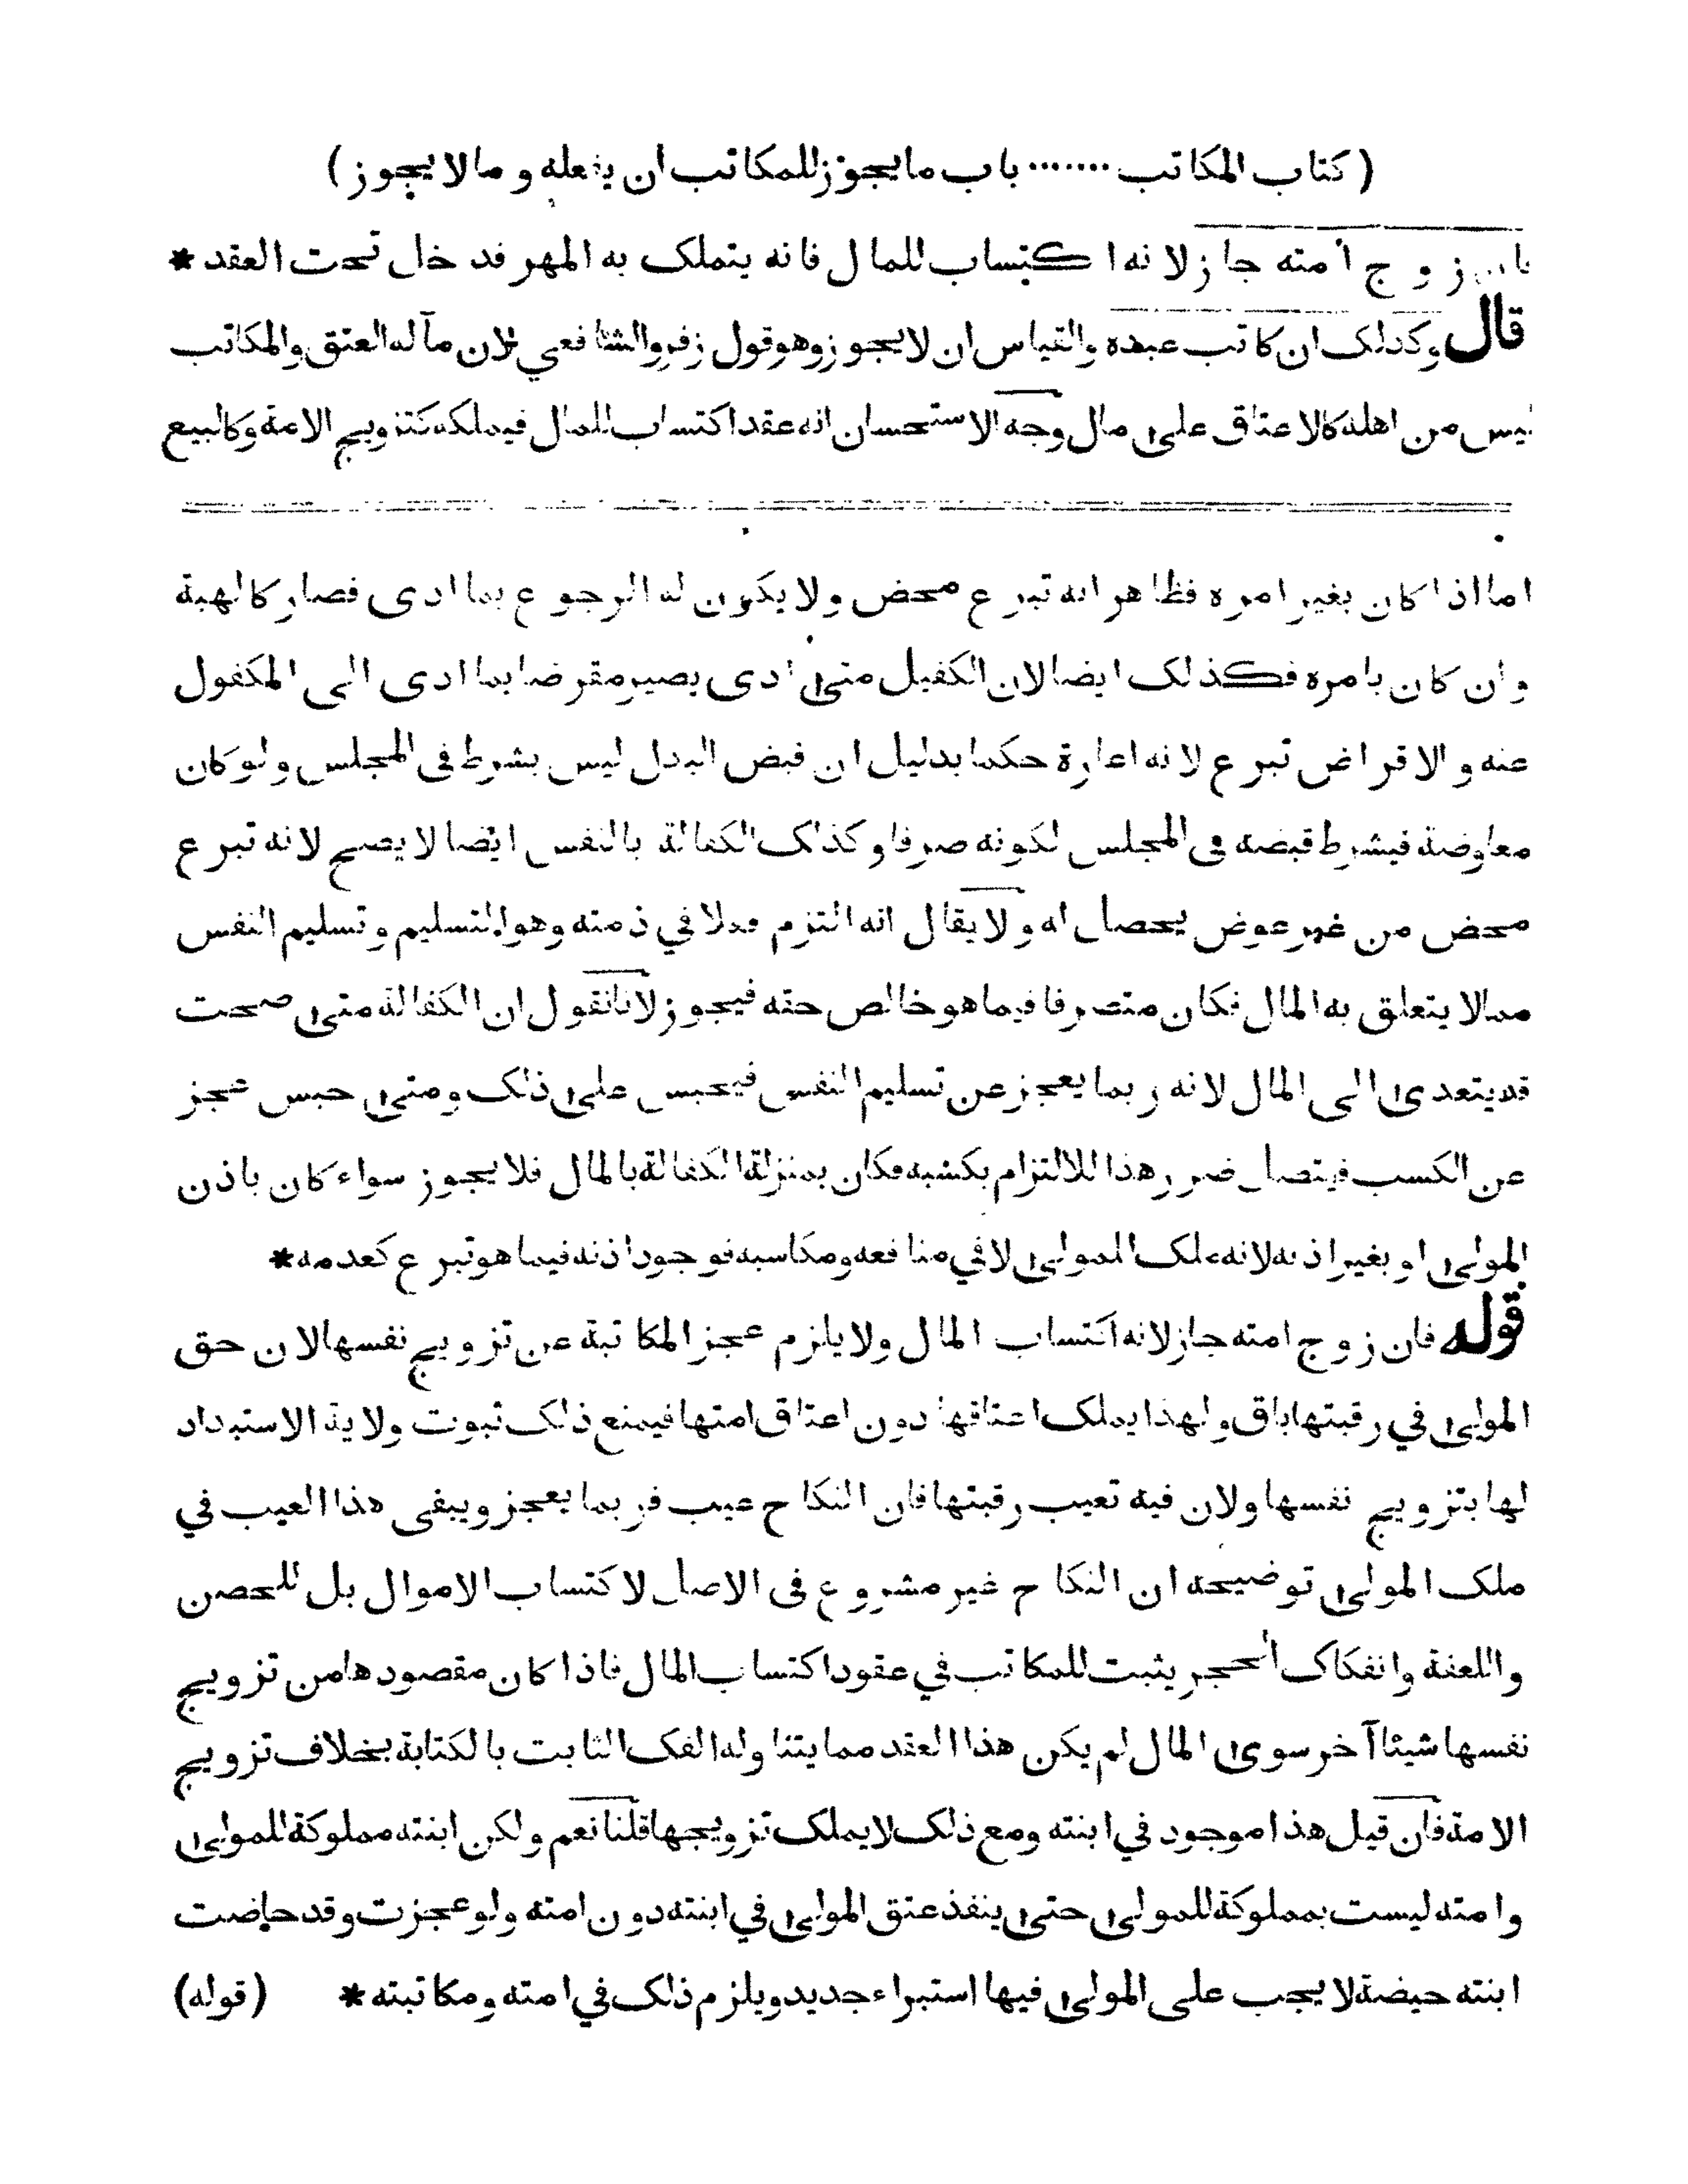 ( كتاب المكاتب ....... باب ما يجوز للمكاتب ان يفعله و ما لا يجوز )
فان زوج امته جاز لانه اكتساب للمال فانه يتملك به المهر فدخل تحت العقد *
قال وكذلك ان كاتب عبده والقياس ان لا يجوز وهو قول زفر والشافعي لان مآله العتق والمكاتب
ليس من اهله كالاعتاق على مال وجه الاستحسان انه عقد اكتساب للمال فيملكه كتزويج الامة وكالبيع
اما اذا كان بغير امره فظاهر انه تبرع محض ولا يكون له الرجوع بما ادى فصار كالهبة
وان كان بامره فكذلك ايضا لان الكفيل متى ادى يصير مقرضا بما ادى الى المكفول
عنه والاقراض تبرع لانه اعارة حكما بدليل ان قبض البدل ليس بشرط فى المجلس ولو كان
معاوضة فيشرط قبضه فى المجلس لكونه صرفا وكذلك الكفالة بالنفس ايضا لا يصح لانه تبرع
محض من غير عوض يحصل له ولا يقال انه التزم فعلا في ذمته وهو التسليم وتسليم النفس
مما لا يتعلق به المال فكان متصرفا فيما هو خالص حقه فيجوز لانا نقول ان الكفالة متى صحت
قد يتعدى الى المال لانه ربما يعجز عن تسليم النفس فيحبس على ذلك ومتى حبس عجز
عن الكسب فيتصل ضرر هذا الالتزام بكسبه فكان بمنزلة الكفالة بالمال فلا يجوز سواء كان باذن
المولى او بغير اذنه لانه ملك المولى لا في منافعه ومكاسبه فوجود اذنه فيما هو تبرع كعدمه *
قوله فان زوج امته جاز لانه اكتساب المال ولا يلزم عجز المكاتبة عن تزويج نفسها لان حق
المولى في رقبتها باق ولهذا يملك اعتاقها دون اعتاق امتها فيمنع ذلك ثبوت ولاية الاستبداد
لها بتزويج نفسها ولان فيه تعيب رقبتها فان النكاح عيب فربما يعجز ويبقى هذا العيب في
ملك المولى توضيحه ان النكاح غير مشروع فى الاصل لاكتساب الاموال بل للحصن
واللعفة وانفكاك الحجر يثبت للمكاتب في عقود اكتساب المال فاذا كان مقصودها من تزويج
نفسها شيئا آخر سوى المال لم يكن هذا العقد مما يتناوله الفك الثابت بالكتابة بخلاف تزويج
الامة فان قيل هذا موجود في ابنته ومع ذلك لا يملك تزويجها قلنا نعم ولكن ابنته مملوكة للمولى
وامته ليست بمملوكة للمولى حتى ينفذ عتق المولى في ابنته دون امته ولو عجزت وقد حاضت
ابنته حيضة لا يجب على المولى فيها استبراء جديد ويلزم ذلك في امته ومكاتبته * (قوله)